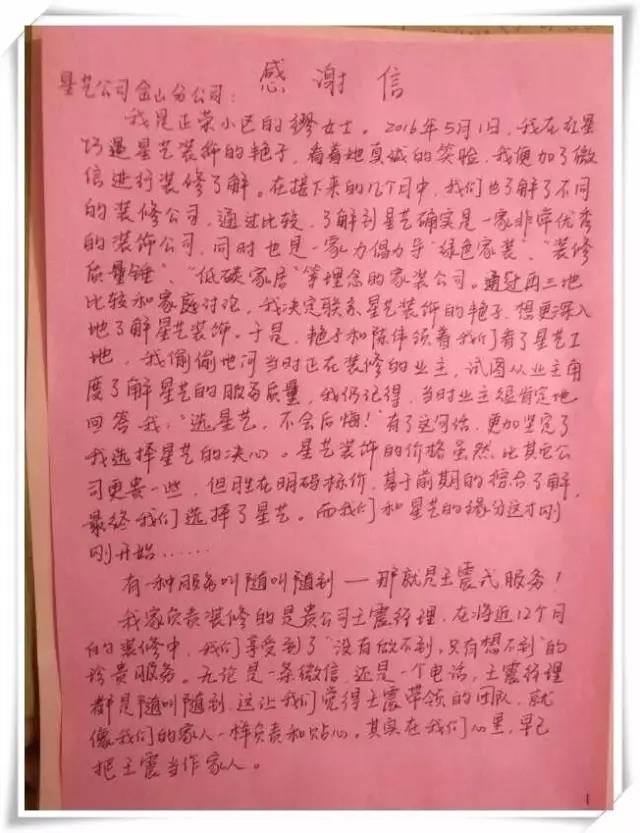 感谢信
星艺公司金山分公司:
我是正荣小区的缪女士。2016年5月1日,我在红星
巧遇星艺装饰的艳子,看着她真诚的笑脸,我便加了微
信进行装修了解。在接下来的几个月中,我们也了解了不同
的装修公司,通过比较,了解到星艺确实是一家非常优秀
的装饰公司,同时也是一家力倡力导“绿色家装”、“装修
质量锤”、“低碳家居”等理念的家装公司。通过再三地
比较和家庭讨论,我决定联系星艺装饰的艳子,想更深入
地了解星艺装饰。于是,艳子和陈伟领着我们看了星艺工
地,我偷偷地问当时正在装修的业主,试图从业主角
度了解星艺的服务质量,我仍记得,当时业主很肯定地
回答我:“选星艺,不会后悔!”有了这句话,更加坚定了
我选择星艺的决心。星艺装饰的价格虽然比其它公
司更贵一些,但胜在明码标价,基于前期的综合了解,
最终我们选择了星艺。而我们和星艺的缘分这才刚
刚开始……
有一种服务叫随叫随到——那就是王震式服务!
我家负责装修的是贵公司王震经理,在将近12个月
的装修中,我们享受到了“没有做不到,只有想不到”的
珍贵服务。无论是一条微信,还是一个电话,王震经理
都是随叫随到,这让我们觉得王震带领的团队,就
像我们的家人一样负责和贴心。其实在我们心里,早已
把王震当作家人。
1